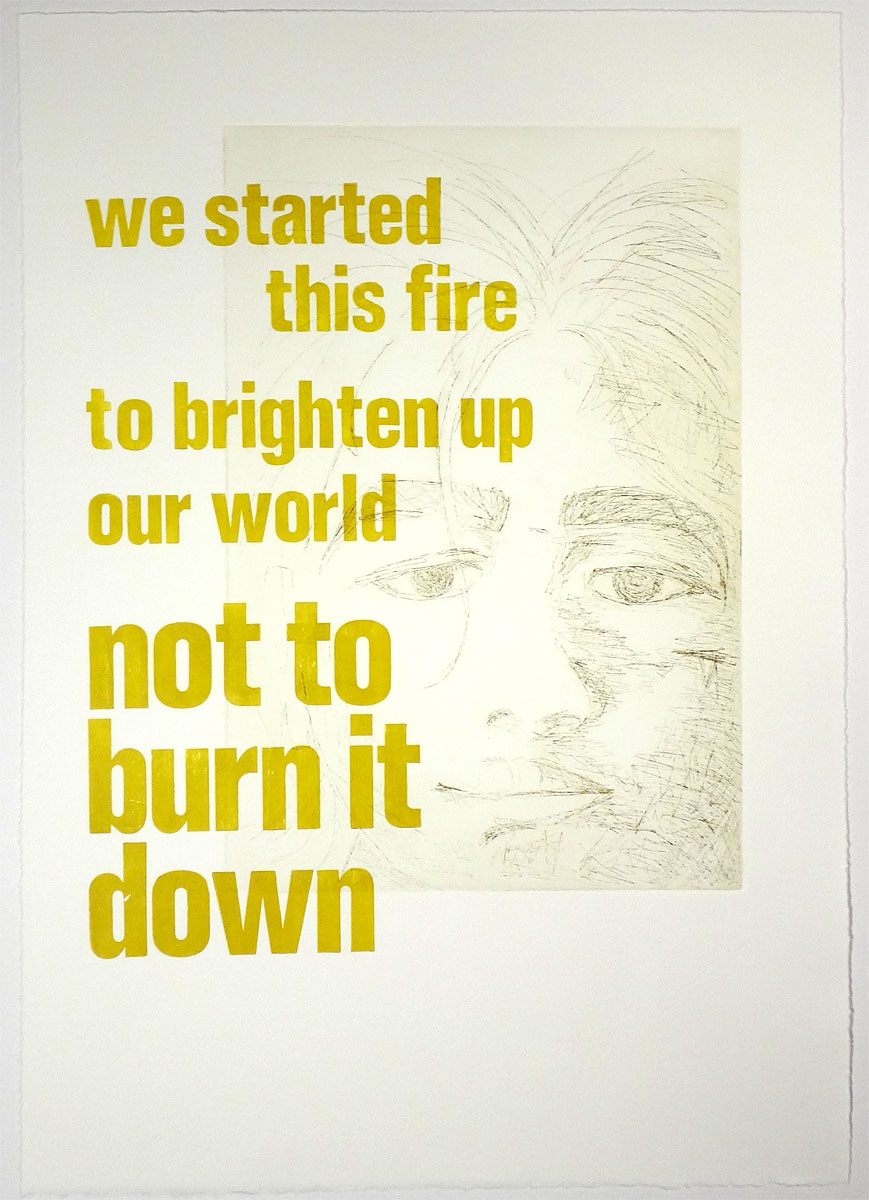 we started
this fire
to brighten up
our world
not to
burn it
down